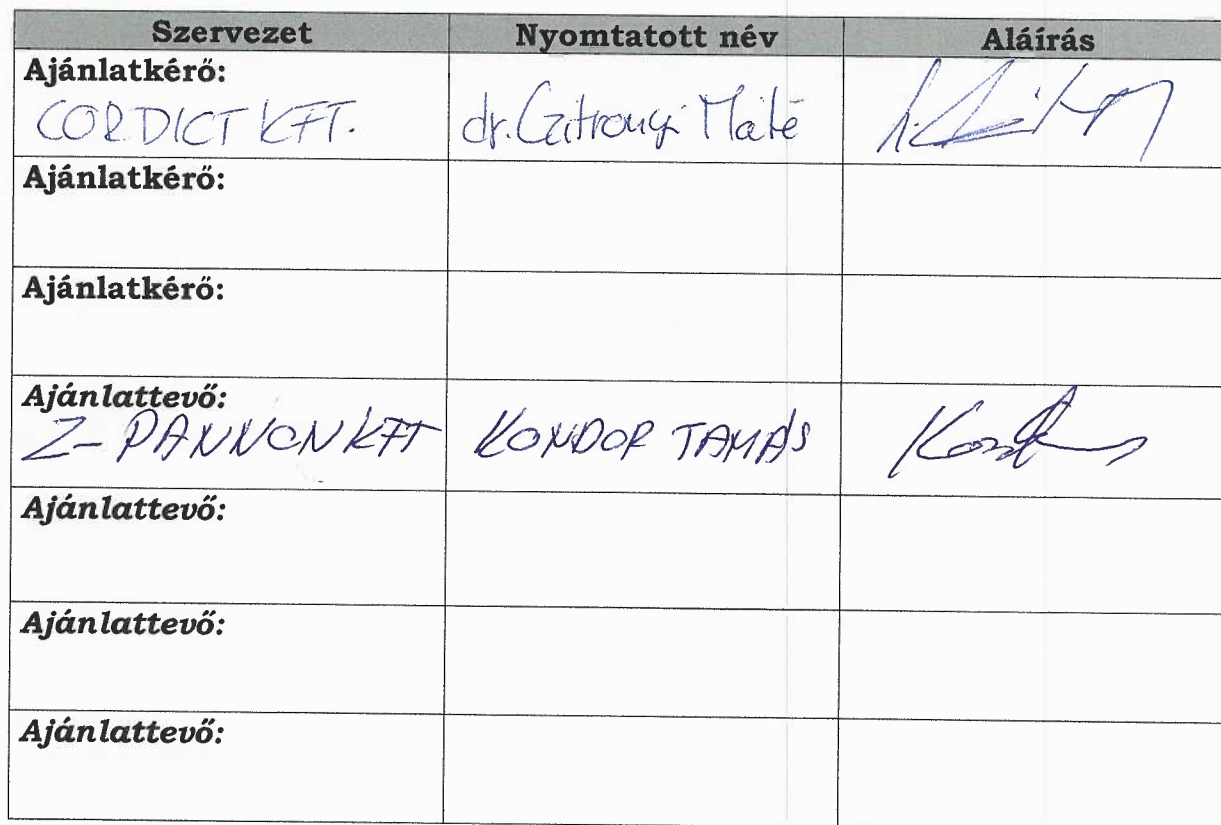 Szervezet Nyomtatott név Aláírás
Ajánlatkérő:
CORDICT KFT. dr. Czitronyi Máté
Ajánlatkérő:
Ajánlatkérő:
Ajánlattevő:
Z-PANNON KFT KONDOR TAMÁS
Ajánlattevő:
Ajánlattevő:
Ajánlattevő: